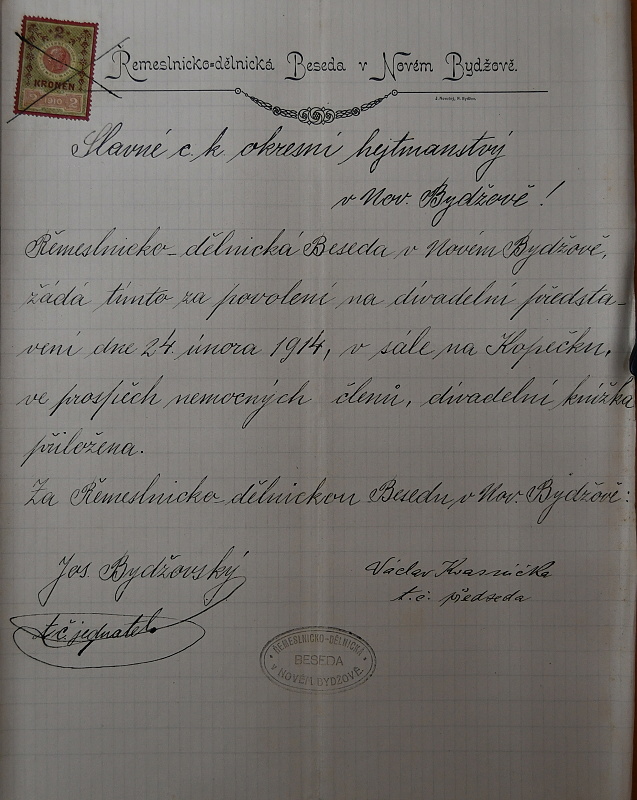 2
KRONEN
2 1910 2
Řemeslnicko-dělnická Beseda v Novém Bydžově.
Slavné c. k. okresní hejtmanstvý
v Nov. Bydžově!
Řemeslnicko-dělnická Beseda v Novém Bydžově,
žádá tímto za povolení na divadelní předsta-
vení dne 24. února 1914, v sále na Kopečku,
ve prospěch nemocných členů, divadelní knížka
přiložena.
Za Řemeslnicko-dělnickou Besedu v Nov. Bydžově:
Jos. Bydžovský
t. č. jednatel.
Václav Kvasnička
t. č. předseda
ŘEMESLNICKO-DĚLNICKÁ
BESEDA
v NOVÉM BYDŽOVĚ.